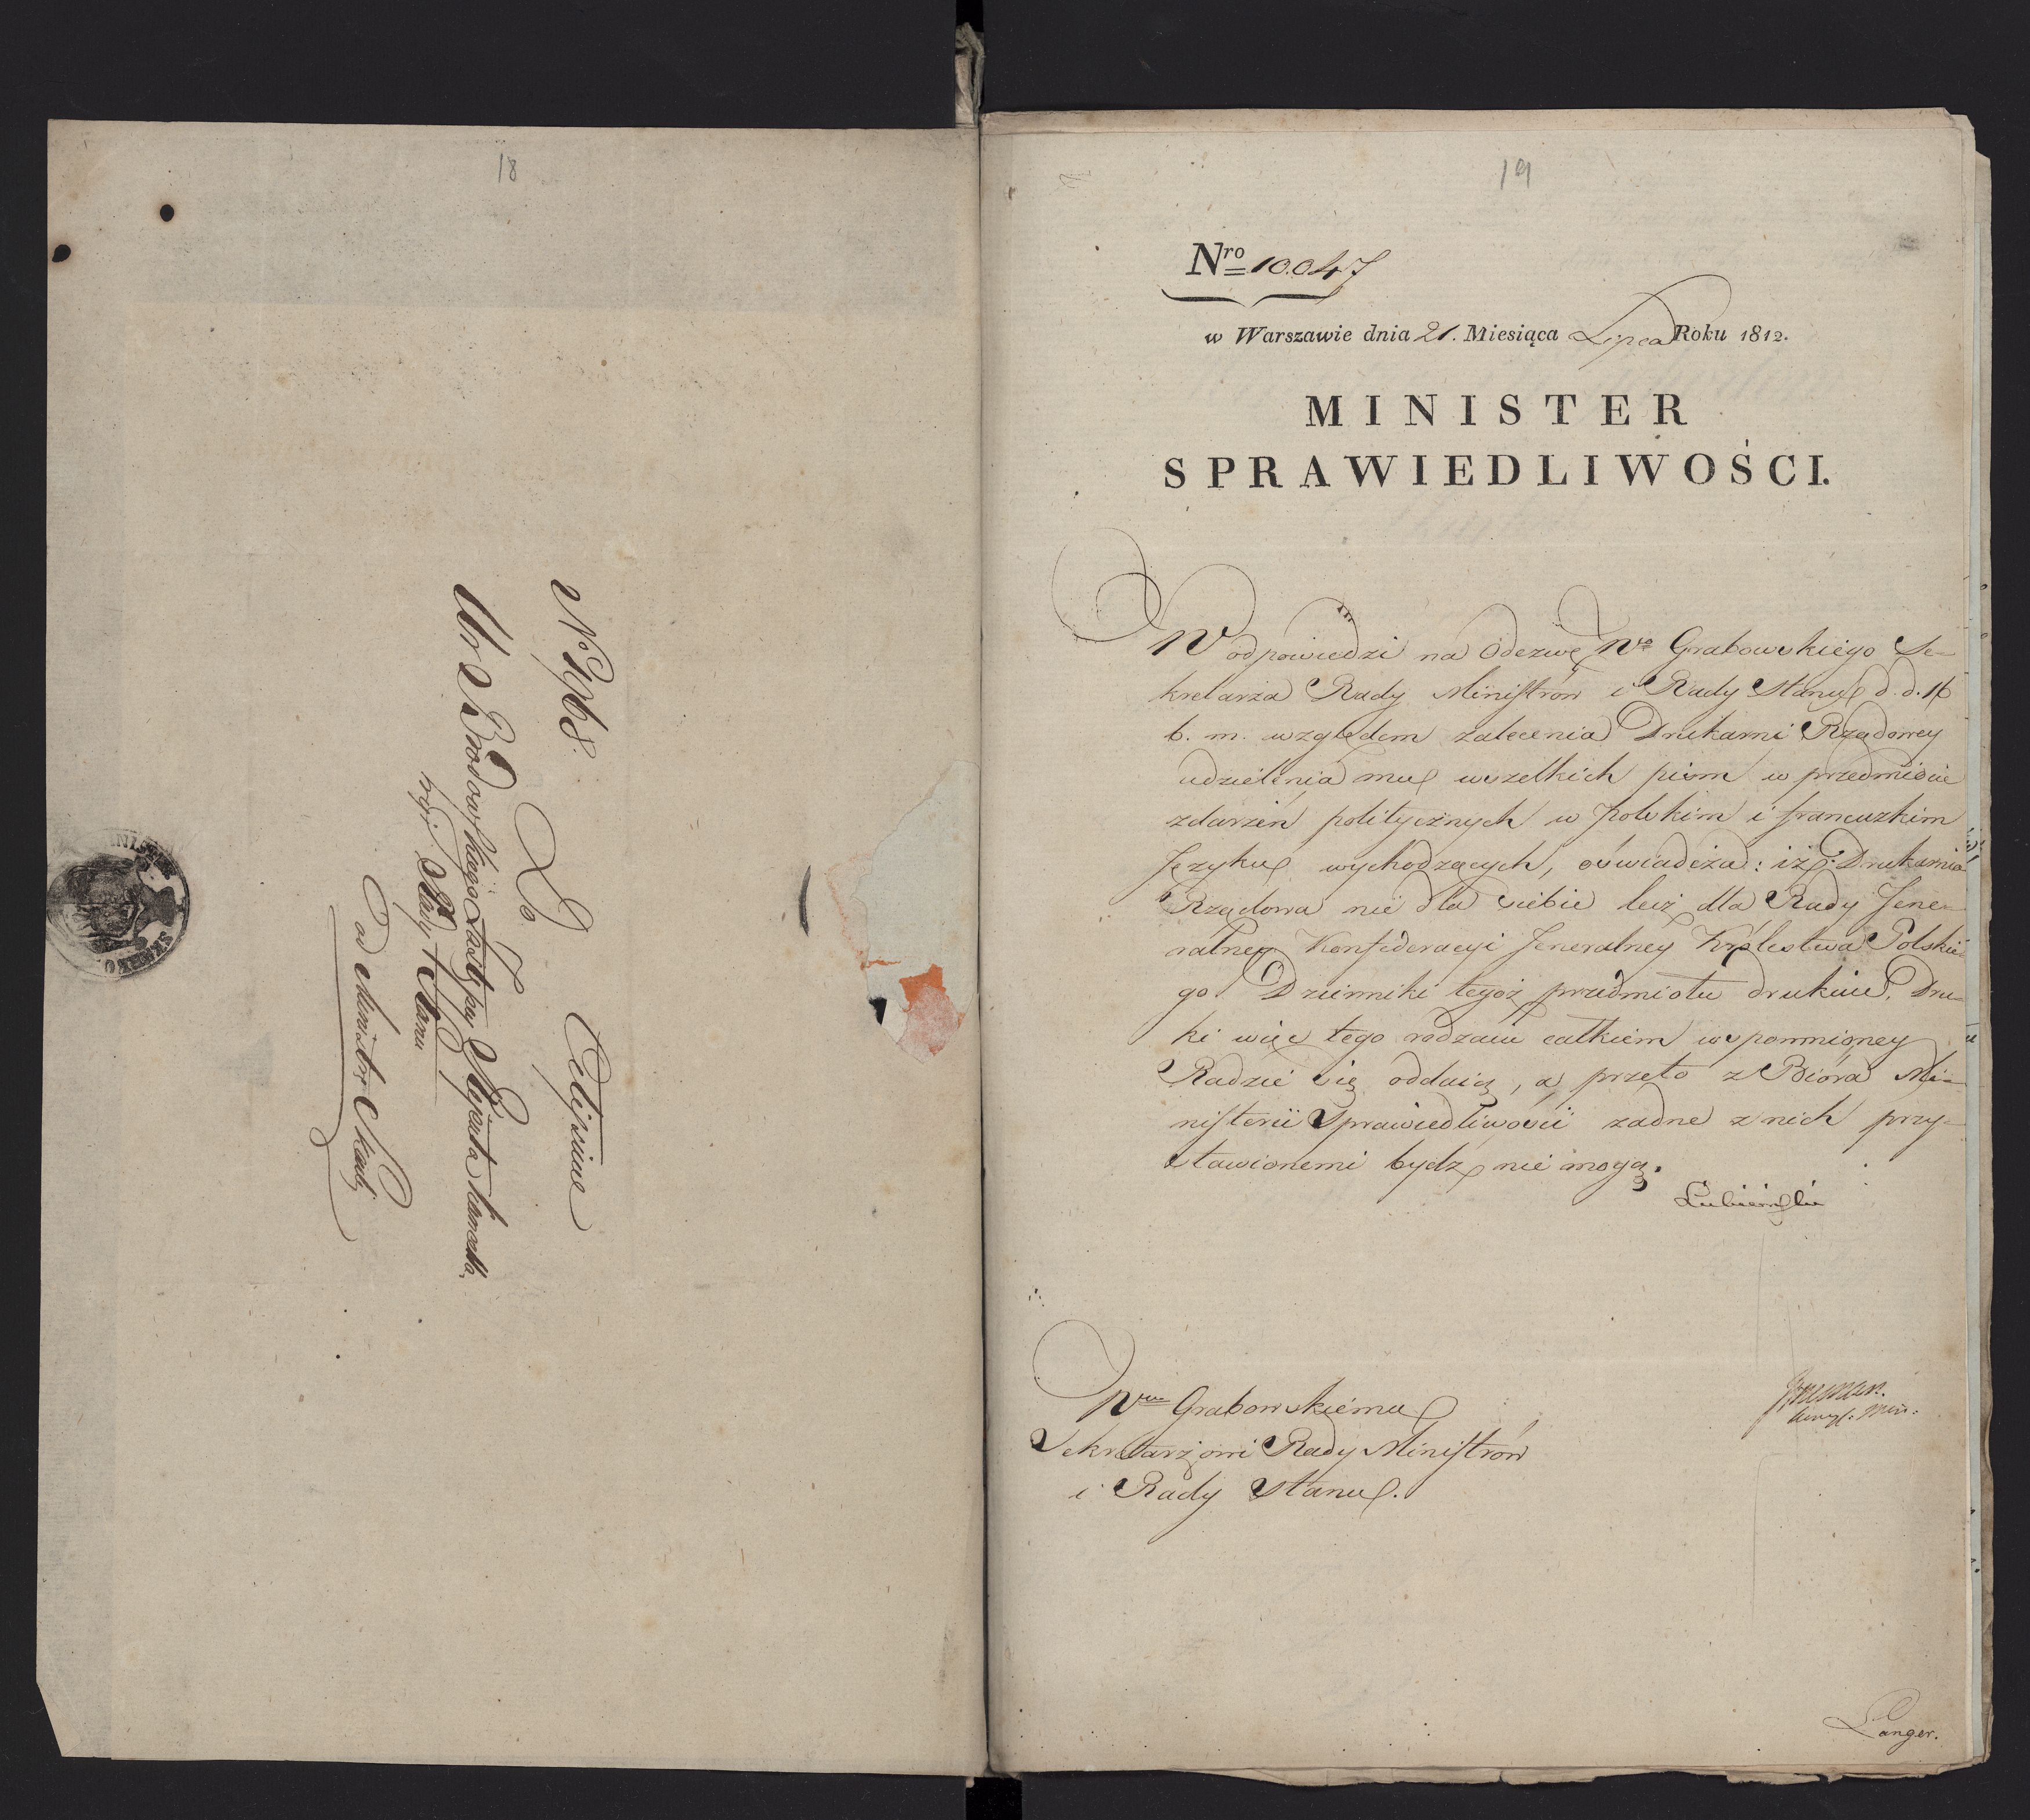 18
Do
Ur Brodowskiego Zastępcy Rejenta Kancella
ryi Rady Stanu
od Ministra Skarbu
19
Nro 10.047
w Warszawie dnia 21. Miesiąca Lipca Roku 1812.
MINISTER
SPRAWIEDLIWOŚCI.
W odpowiedzi na Odezwę Wo Grabowskiego Se-
kretarza Rady Ministrow i Rady Stanu d. d. 16
b. m. względem zalecenia Drukarni Rządowey
udzielenia mu wszelkich pism w przedmiocie
zdarzeń politycznych w polskim i francuzkim
Języku wychodzących, oświadcza: iż Drukarnia
Rządowa nie dla siebie lecz dla Rady Jene-
ralney Konfederacyi Jeneralney Królestwa Polskie
go Dzienniki tegoż przedmiotu drukuie. Dru-
ki więc tego rodzaiu całkiem wspomnioney
Radzie się oddaią, a przeto z Bióra Mi-
nisterii Sprawiedliwości żadne z nich przy-
stawionemi bydź nie mogą.
Łubieński
Wmu Grabowskiemu
Sekretarzowi Rady Ministrów
i Rady Stanu.
Langer.